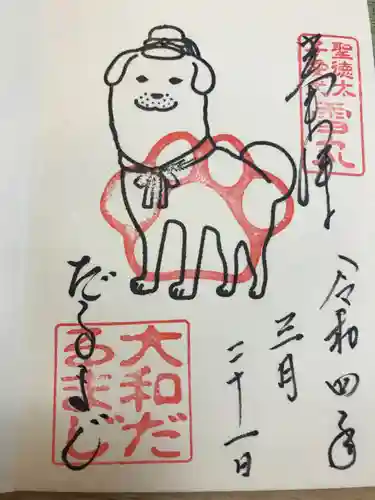 奉拝
聖徳太
子愛犬
雪丸
令和四年
三月
二十一日
だるまじ
大和だ
るまじ